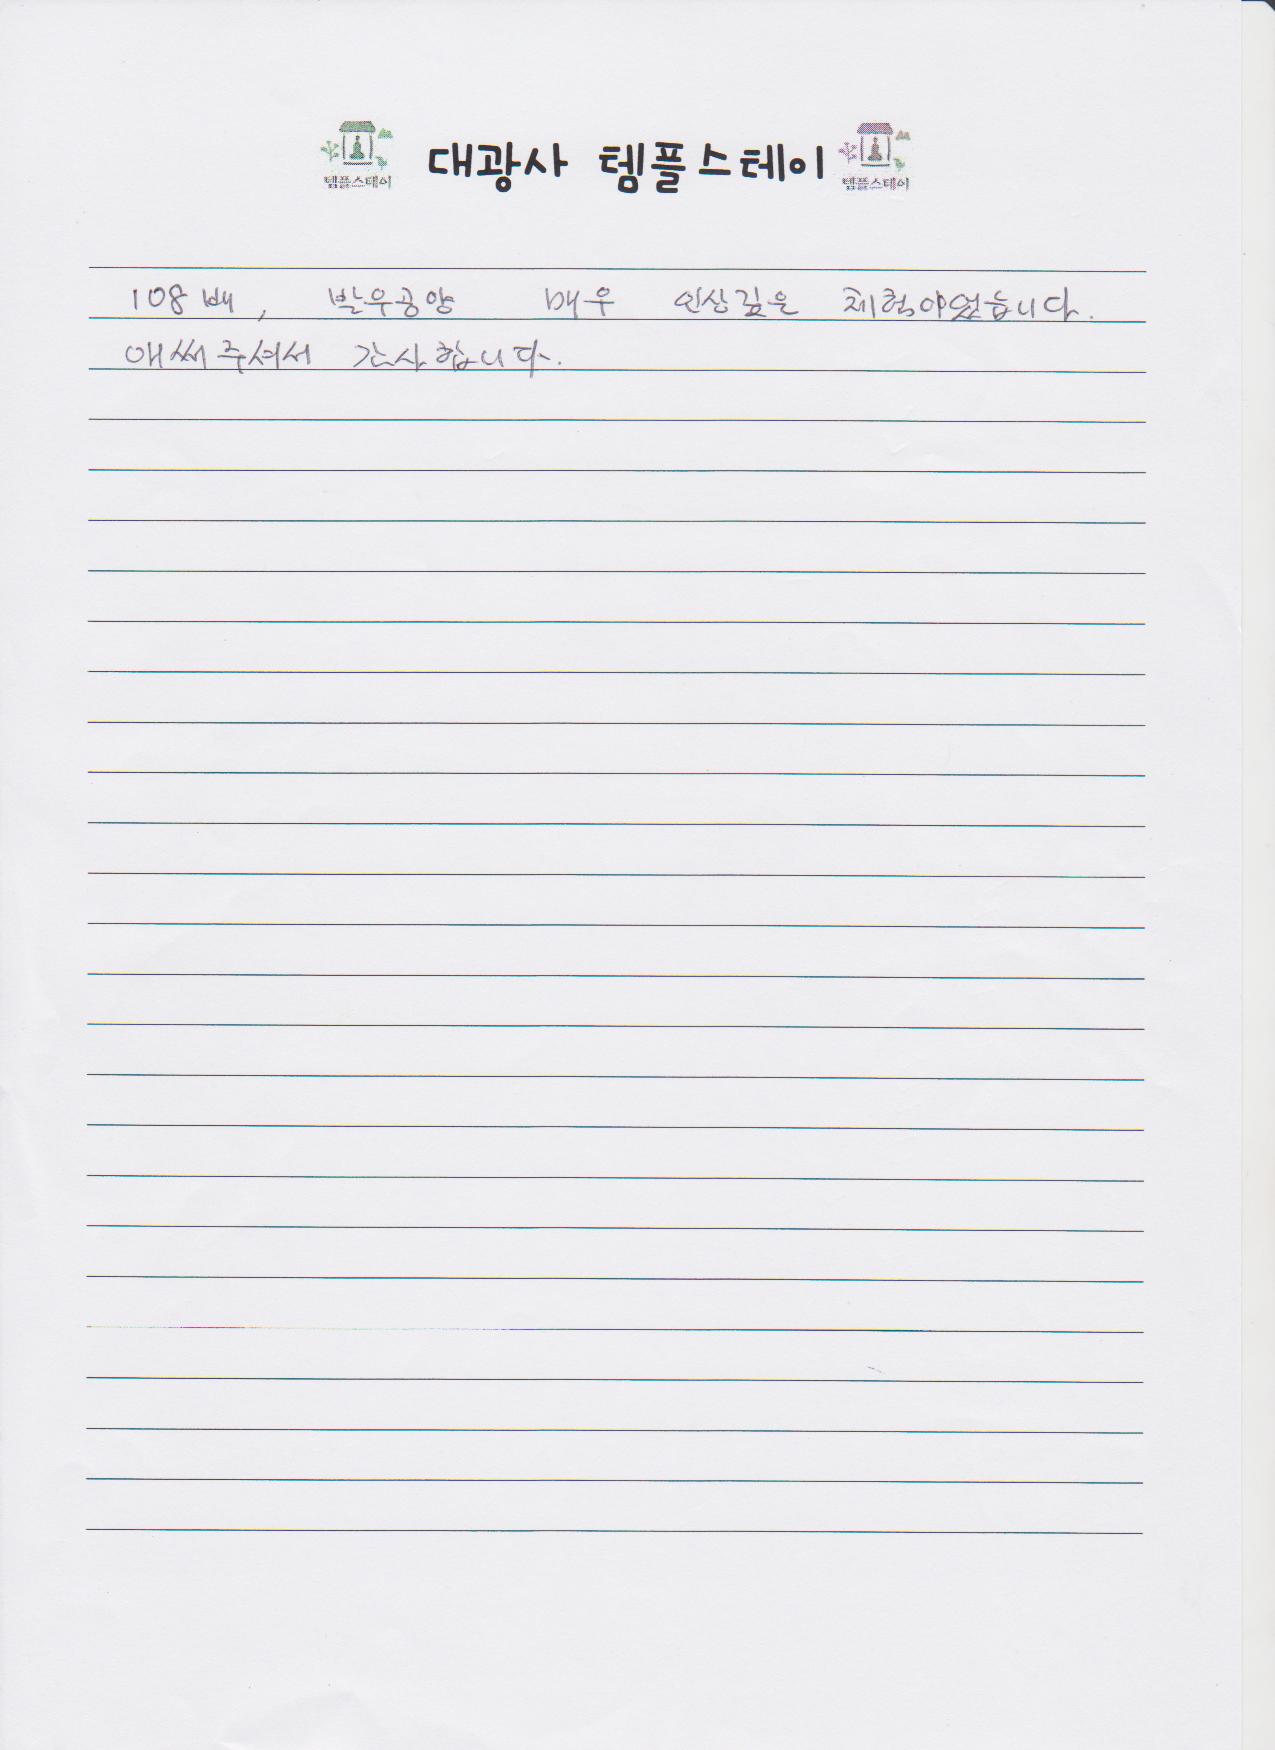 대광사 템플스테이
템플스테이
템플스테이
108배, 발우공양 매우 인상깊은 체험이였습니다.
애써주셔서 감사합니다.